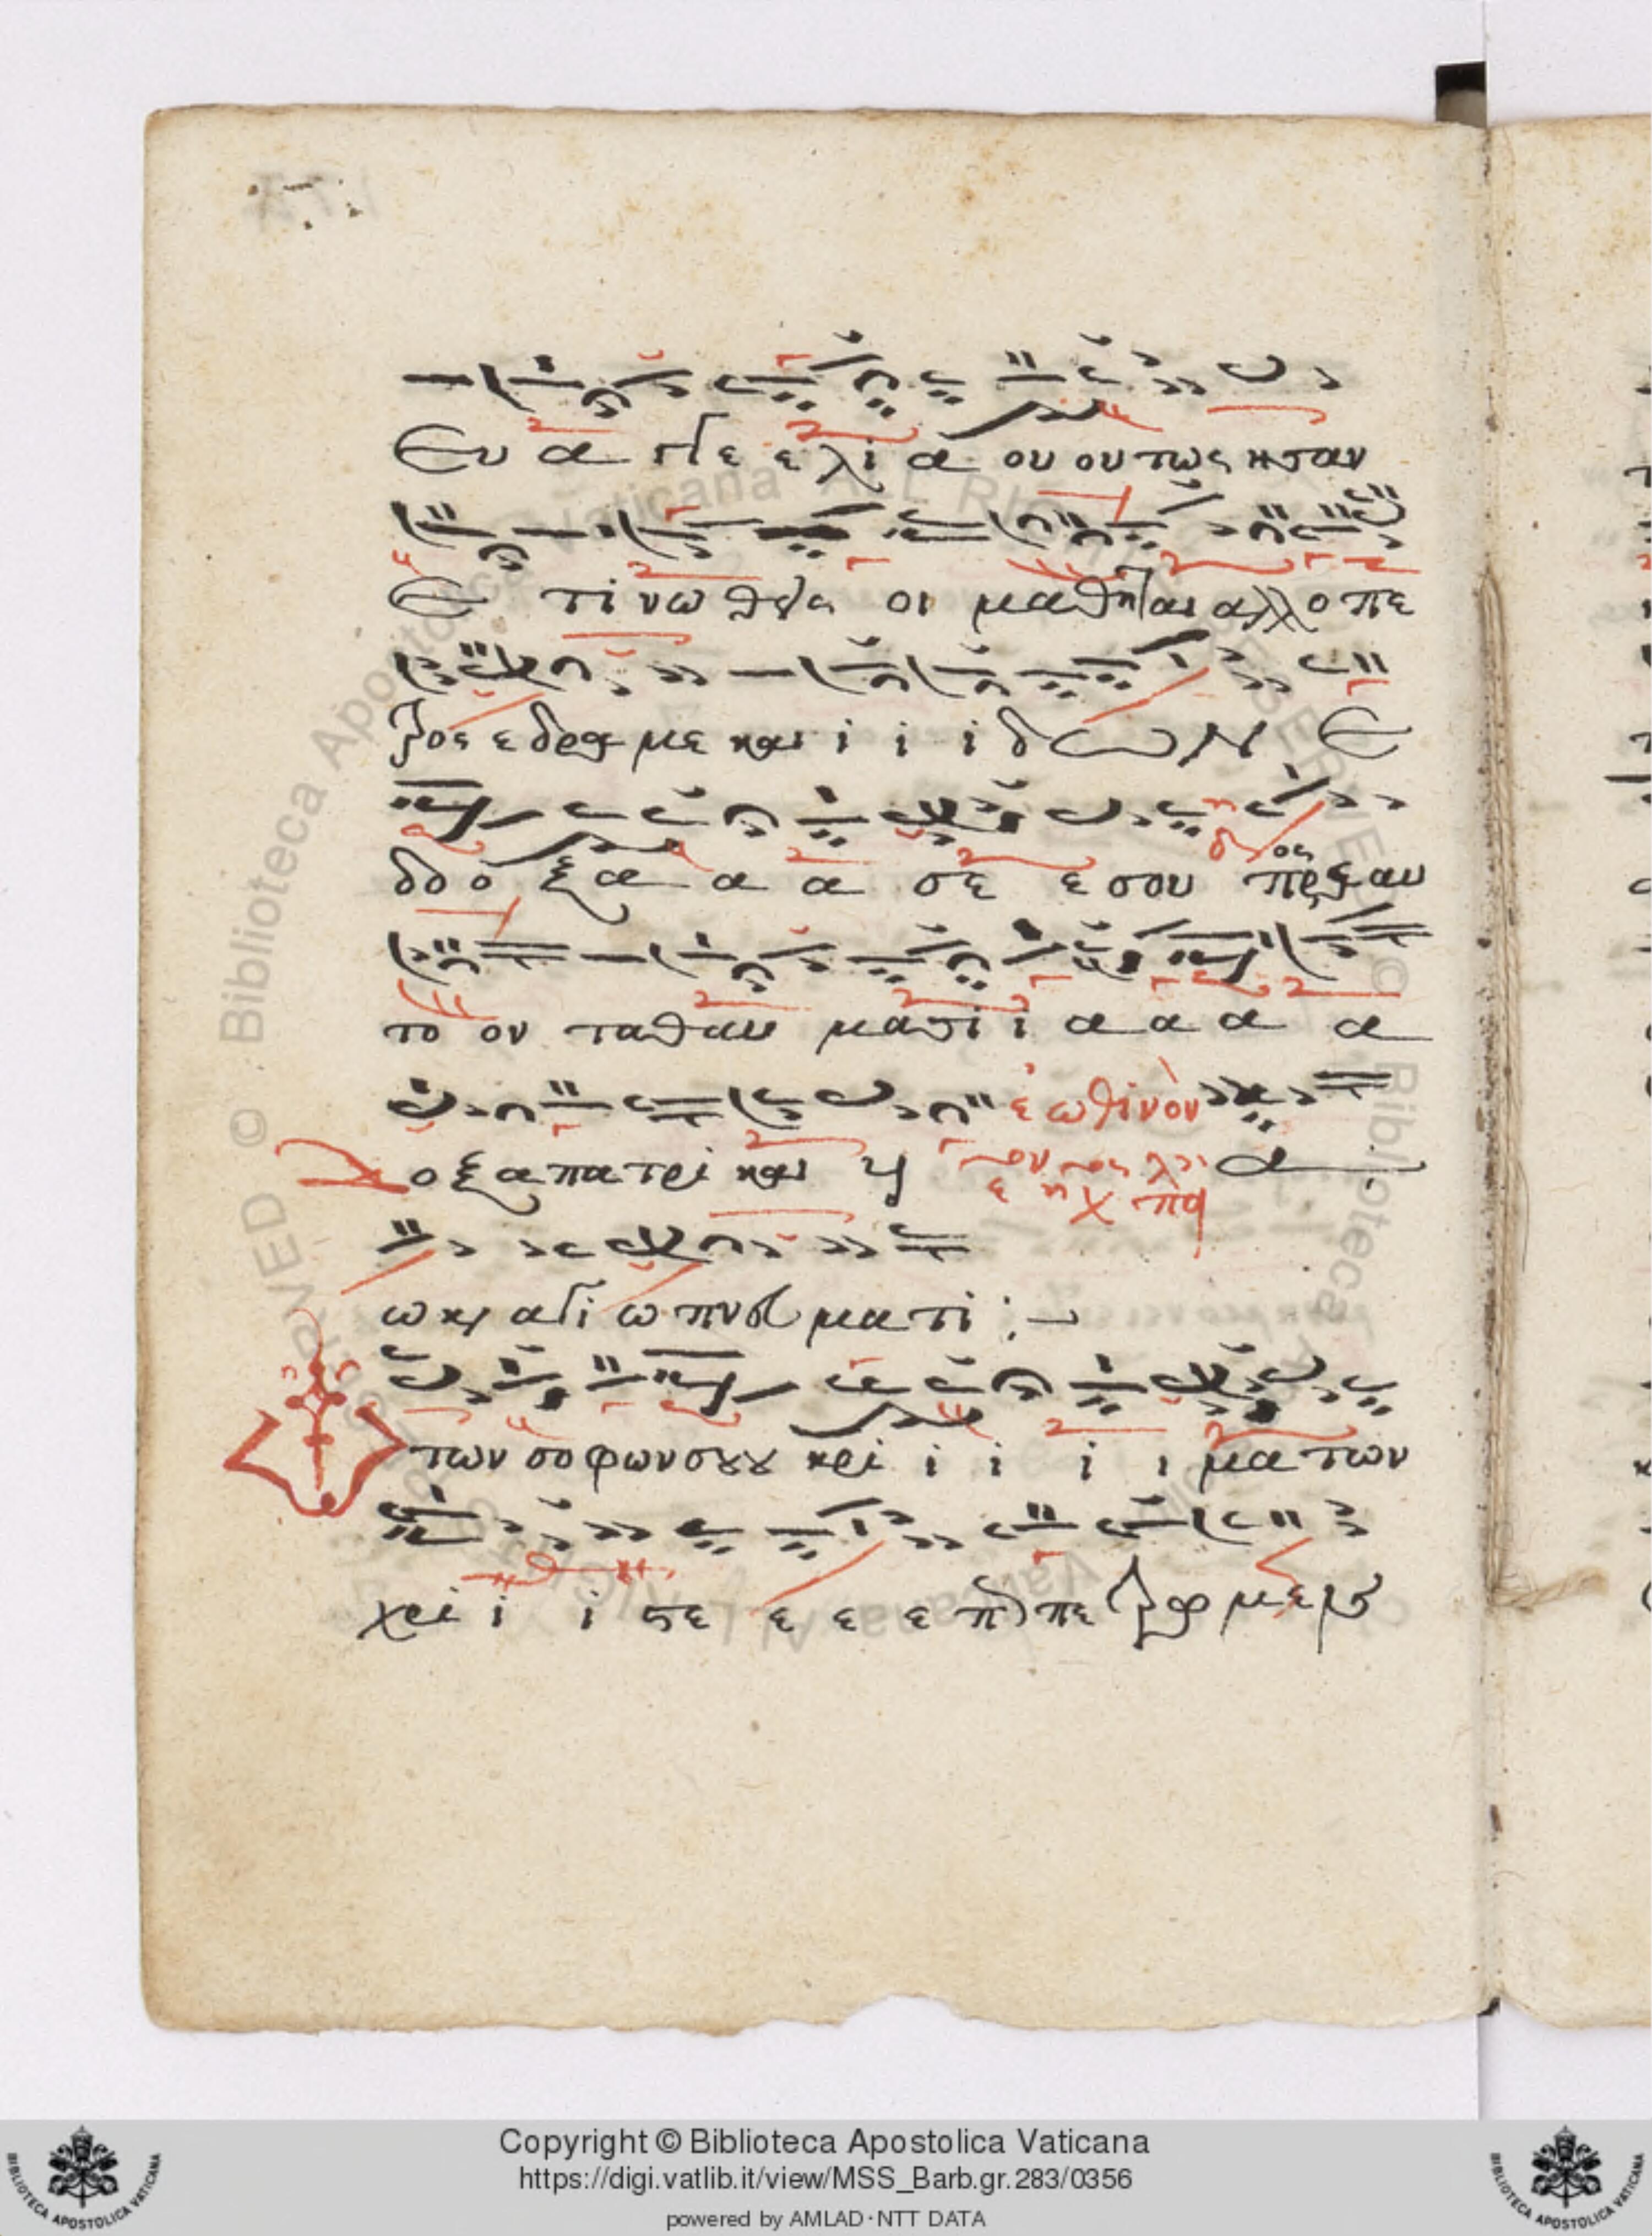 Ευ α γγε ε λι α ου ου τως ησαν
Ε τι νω θεις οι μαθηται αλλ ο πε
τρος ε δρα με και ι ι ι δων Ε
δο ο ξα α α α σε ε σου προς εαυ
το ον τα θαυ μα σι ι α α α α
ἑωθινὸν
Δοξα πατρι και υ α
ε ηχ πλ
ω και αγι ω πνευ ματι :—
Ω των σοφων σου ου κρι ι ι ι ι μα των
χρι ι ι στε ε ε ε πως πε τρω με
Copyright © Biblioteca Apostolica Vaticana
https://digi.vatlib.it/view/MSS_Barb.gr.283/0356
powered by AMLAD·NTT DATA